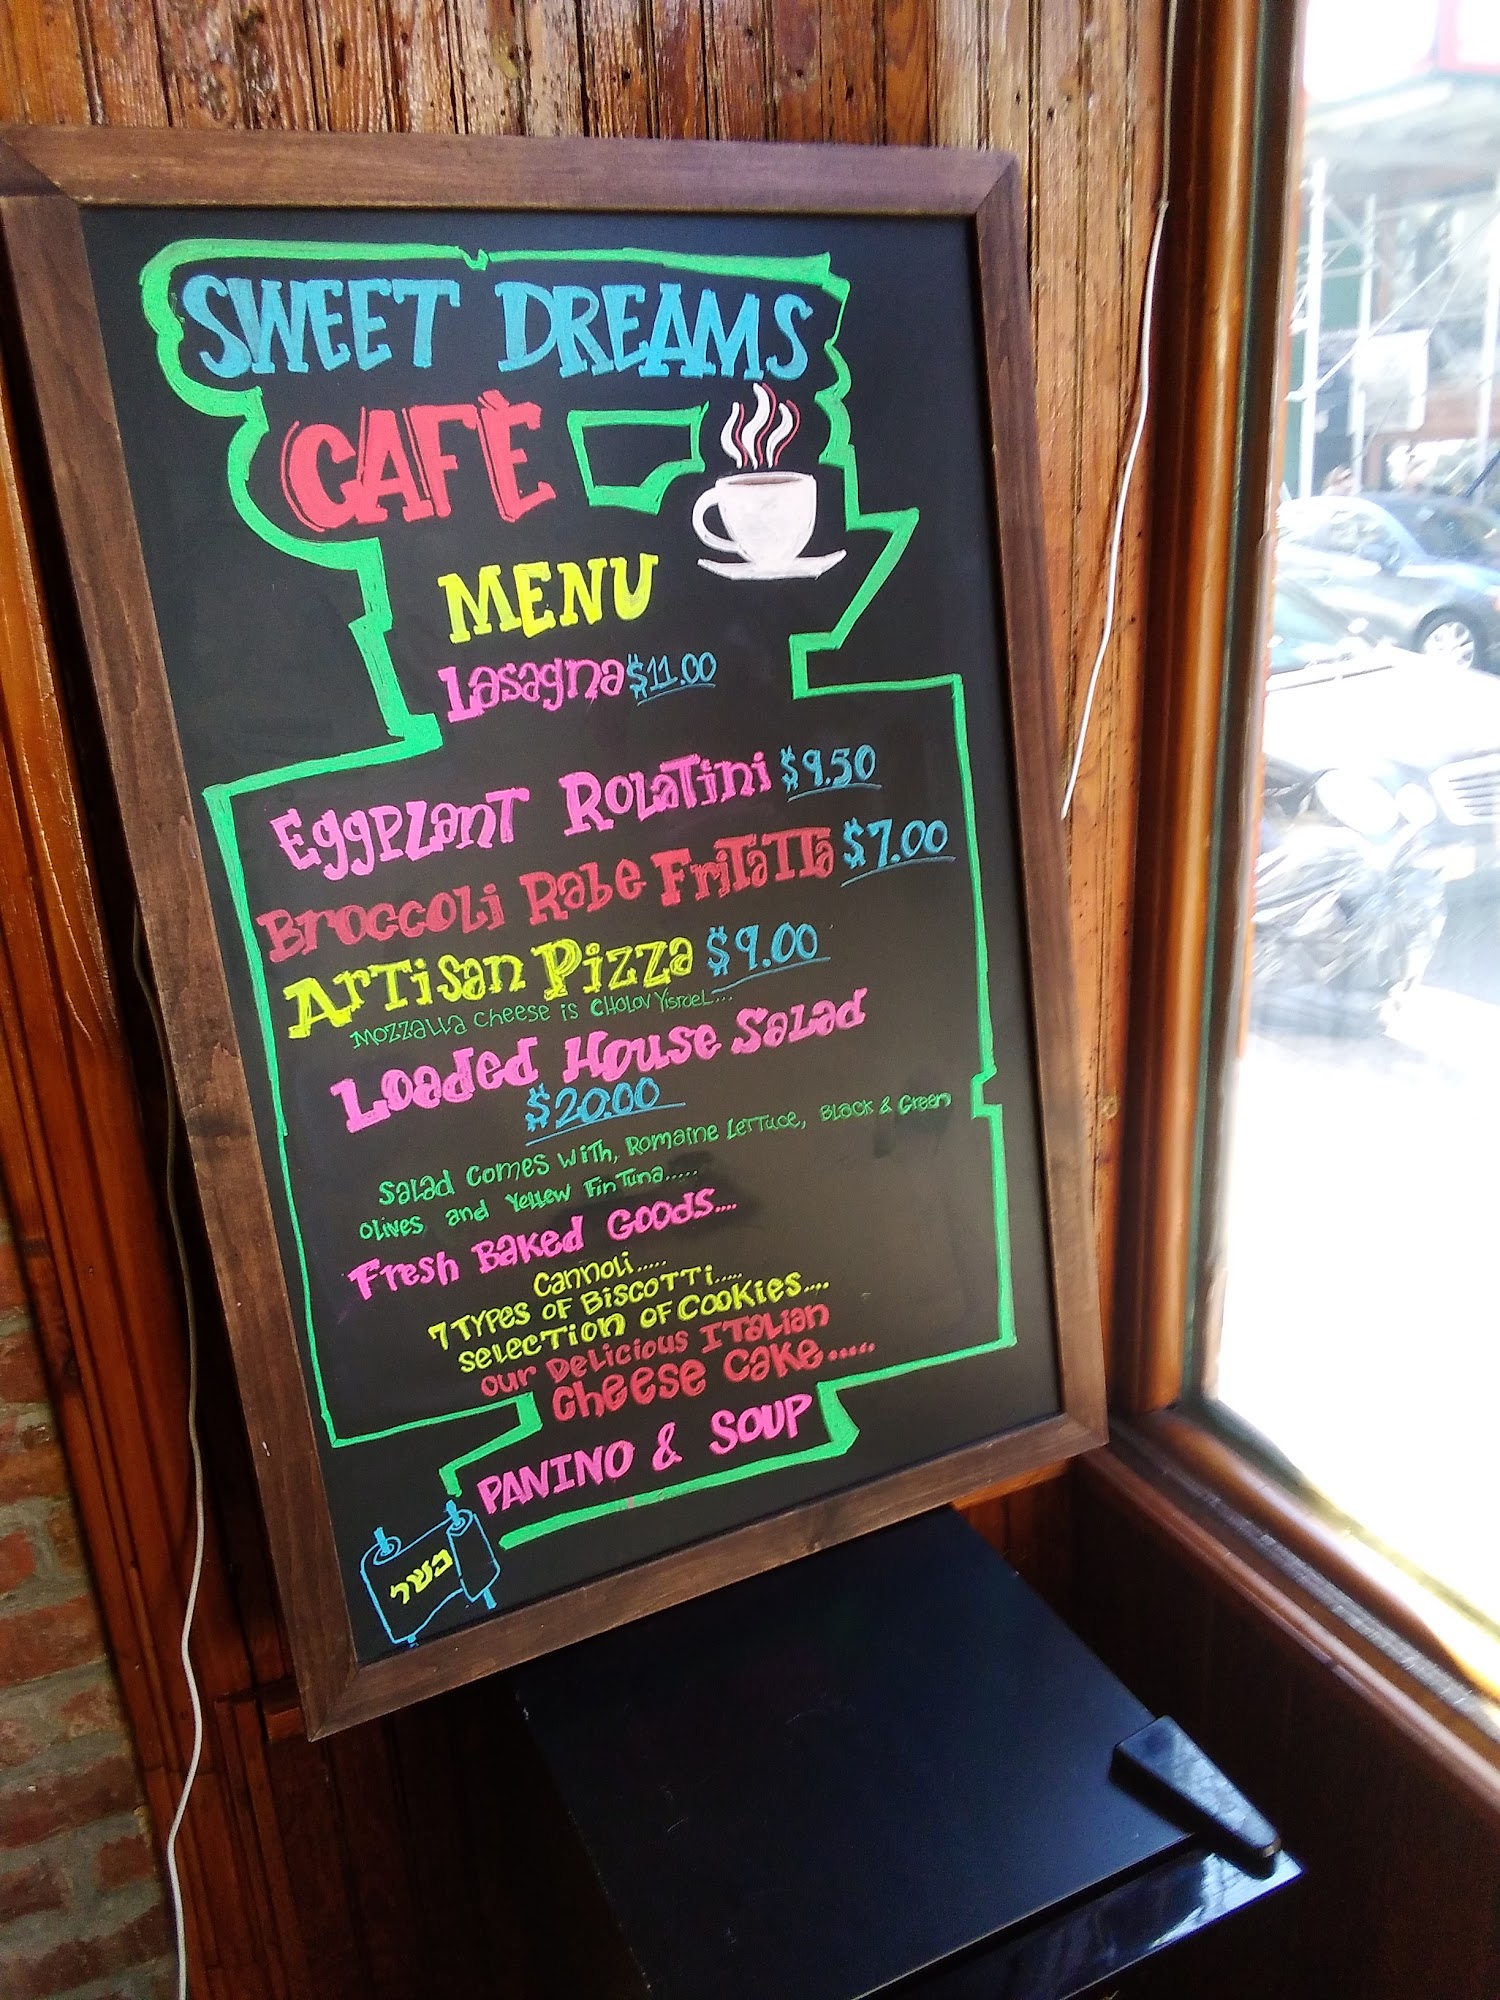 SWEET DREAMS
CAFÈ
MENU
Lasagna $11.00
Eggplant Rolatini $9.50
Broccoli Rabe Fritatta $7.00
Artisan Pizza $9.00
Mozzalla cheese is CHOLOV Yisroel...
Loaded House Salad
$20.00
Salad comes with, Romaine Lettuce, Black & Green
Olives and Yellow Fin Tuna.....
Fresh Baked Goods....
Cannoli.....
7 Types of Biscotti.....
Selection of Cookies....
Our Delicious Italian
Cheese Cake.....
PANINO & SOUP
כשר